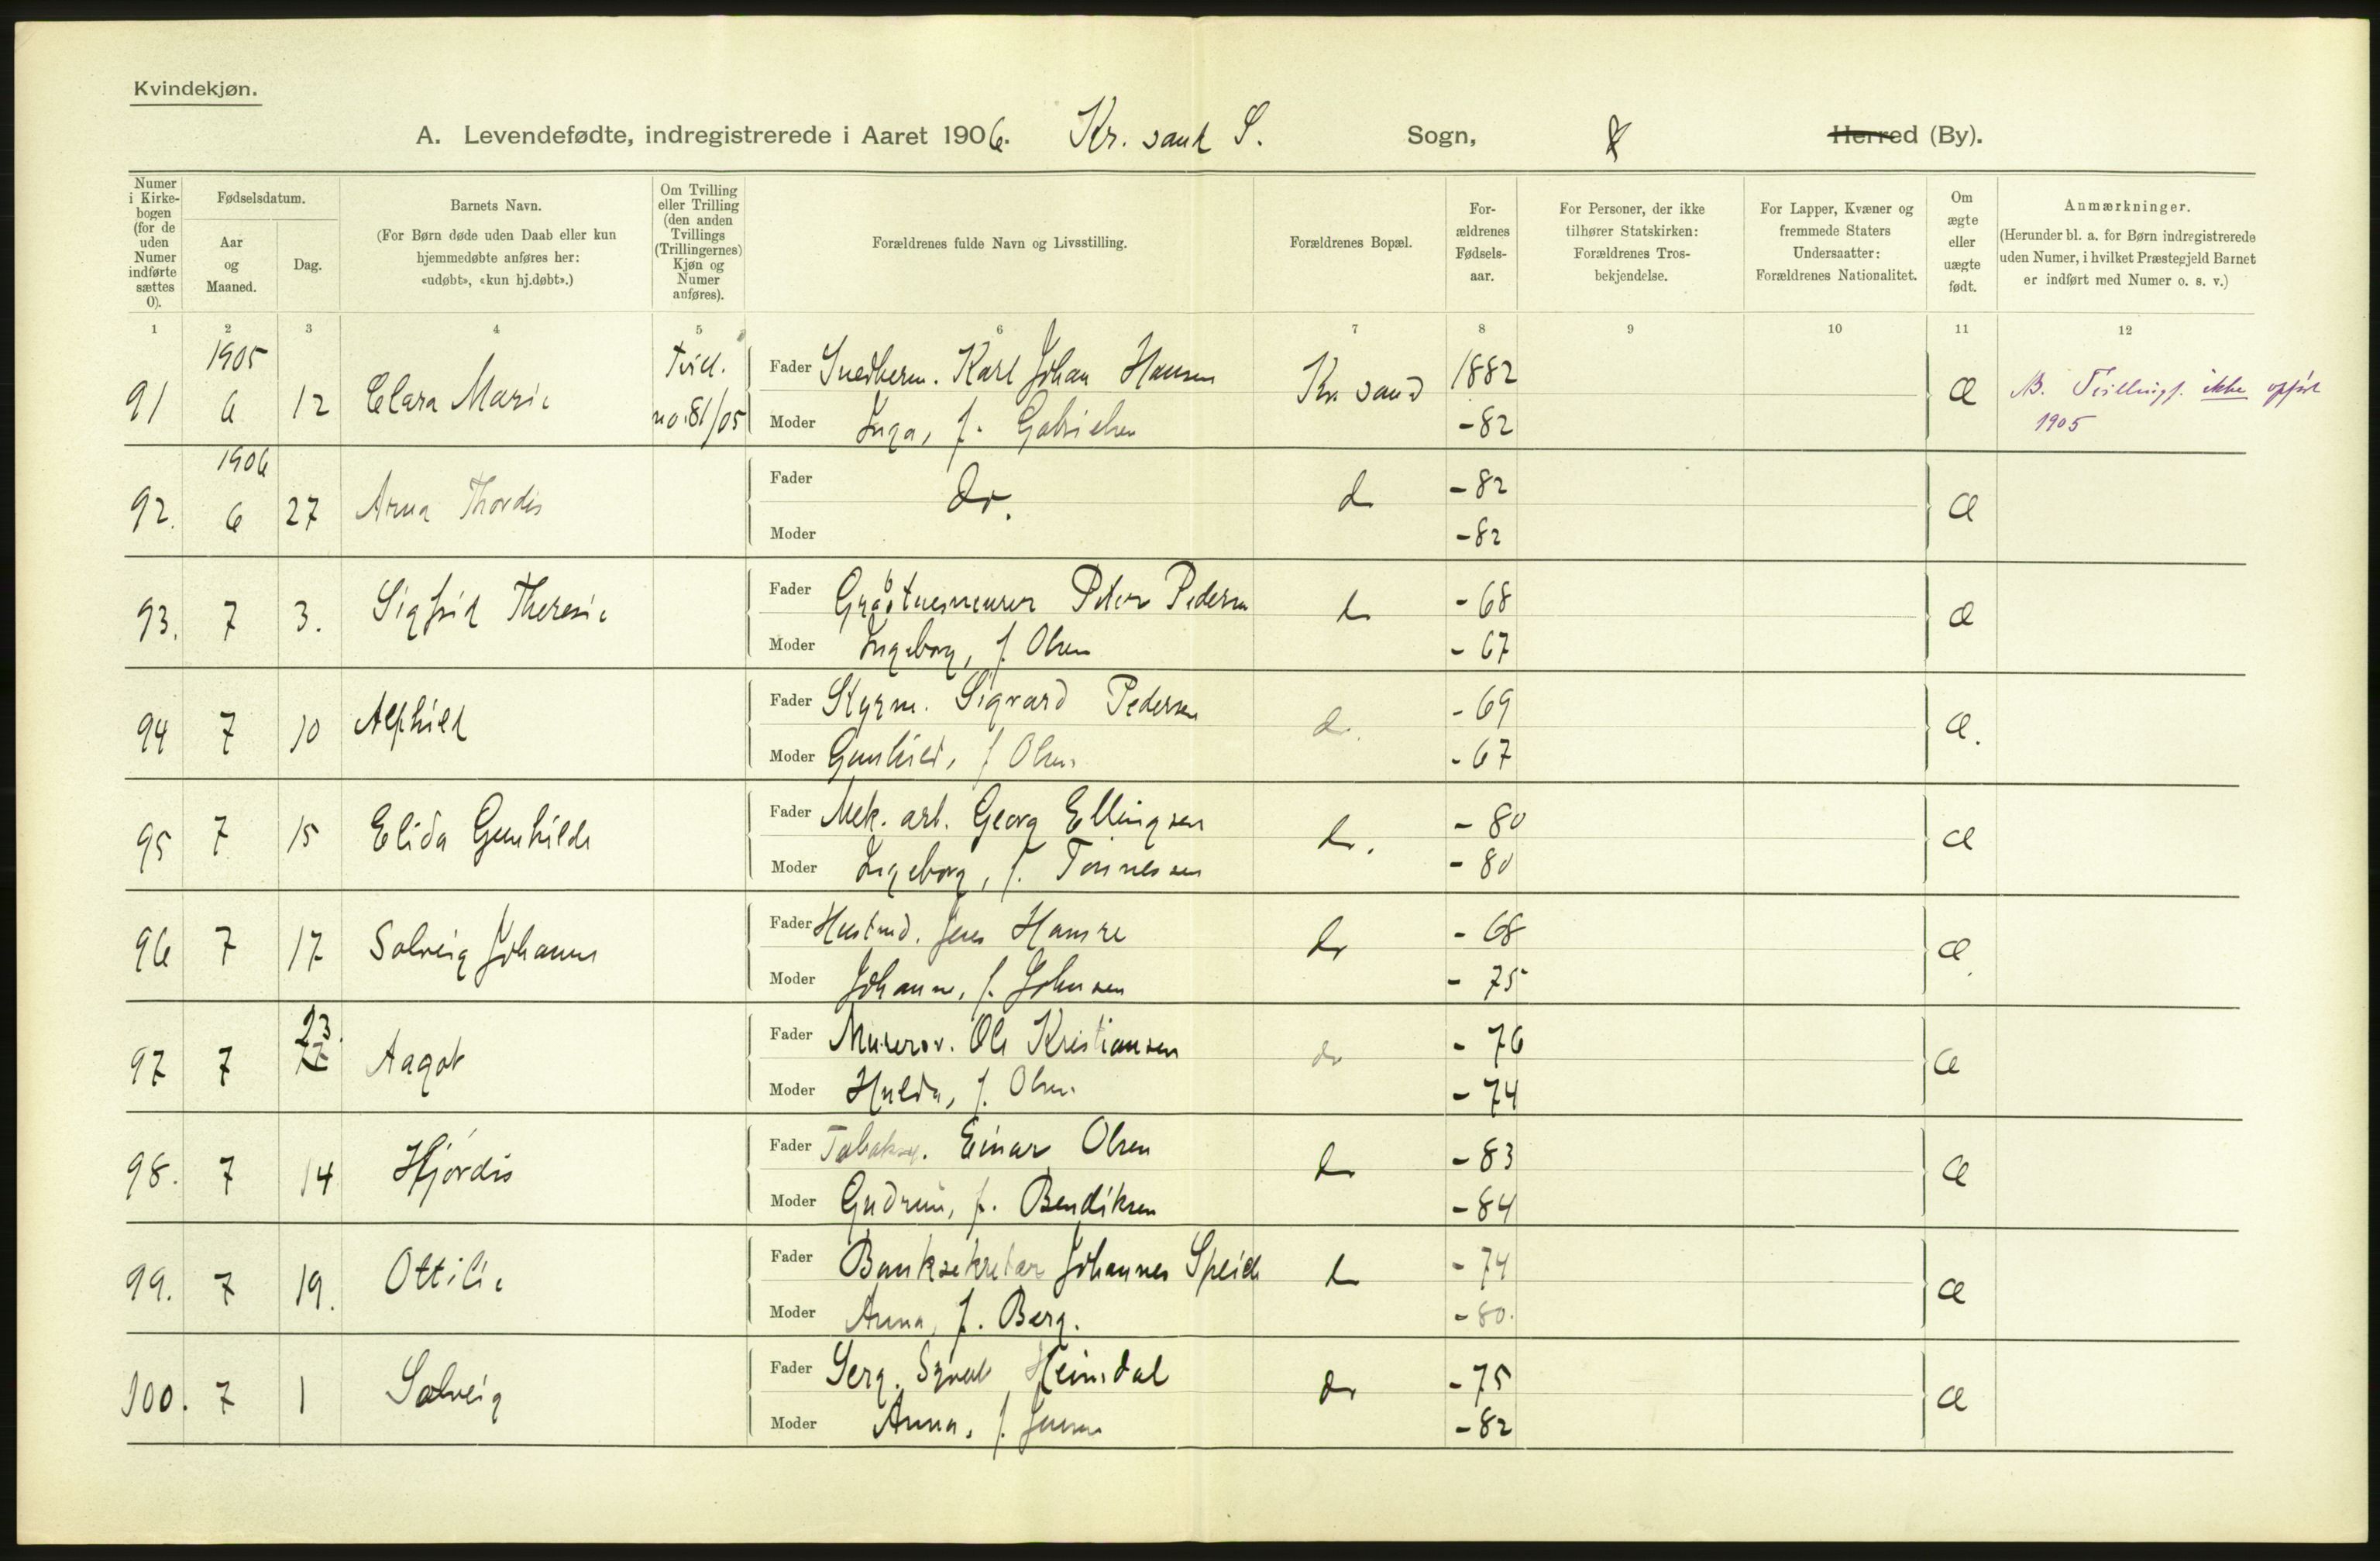 Kvindekjøn.
A. Levendefødte, indregistrerede i Aaret 1906. Kr. sand S. Sogn, Herred (By).
Numer i Kirkebogen (for de uden Numer indførte sættes 0).
Fødselsdatum.
Aar og Maaned.
Dag.
Barnets Navn.
(For Børn døde uden Daab eller kun hjemmedøbte anføres her: «udøbt», «kun hj.døbt».)
Om Tvilling eller Trilling (den anden Tvillings (Trillingernes) Kjøn og Numer anføres).
Forældrenes fulde Navn og Livsstilling.
Forældrenes Bopæl.
For-ældrenes Fødsels-aar.
For Personer, der ikke tilhører Statskirken: Forældrenes Tros-bekjendelse.
For Lapper, Kvæner og fremmede Staters Undersaatter: Forældrenes Nationalitet.
Om ægte eller uægte født.
Anmærkninger.
(Herunder bl. a. for Børn indregistrerede uden Numer, i hvilket Præstegjeld Barnet er indført med Numer o. s. v.)
1 2 3 4 5 6 7 8 9 10 11 12
1905
91 6 12 Clara Marie Tvill. no. 81/05 Fader Snedkerm. Karl Johan Hansen Kr. sand 1882 Æ
Moder Inga, f. Gabrielsen -82
B. Tvillingf. ikke opført 1905
1906
92. 6 27 Anna Thordis Fader do. d -82 Æ
Moder -82
93. 7 3. Sigfrid Theresie Fader Peder Pedersen do -68 Æ
Moder Ingeborg, f. Olsen -67
94 7 10 Alfhild Fader Styrm. Sigvard Pedersen do. -69 Æ.
Moder Gunhild, f Olsen -67
95 7 15 Elida Gunhilde Fader Mek. arb. Georg Ellingsen do. -80 Æ
Moder Ingeborg, f. Tønnessen -80
96 7 17 Solveig Johanne Fader Jens Hamre do -68 Æ
Moder Johanne, f. Johnsen -75
97 7 23. Aagot Fader Murersv. Ole Kristiansen do -76 Æ
Moder Hulda, f. Olsen -74
98. 7 14 Hjørdis Fader Einar Olsen do -83 Æ
Moder Gudrun, f. Bendiksen -84
99. 7 19. Ottilie Fader Banksekretær Johannes do -74 Æ
Moder Anna, f. Berg. -80.
100. 7 1 Solveig Fader Serg. Heimdal do -75 Æ
Moder Anna, f. Jensen -82